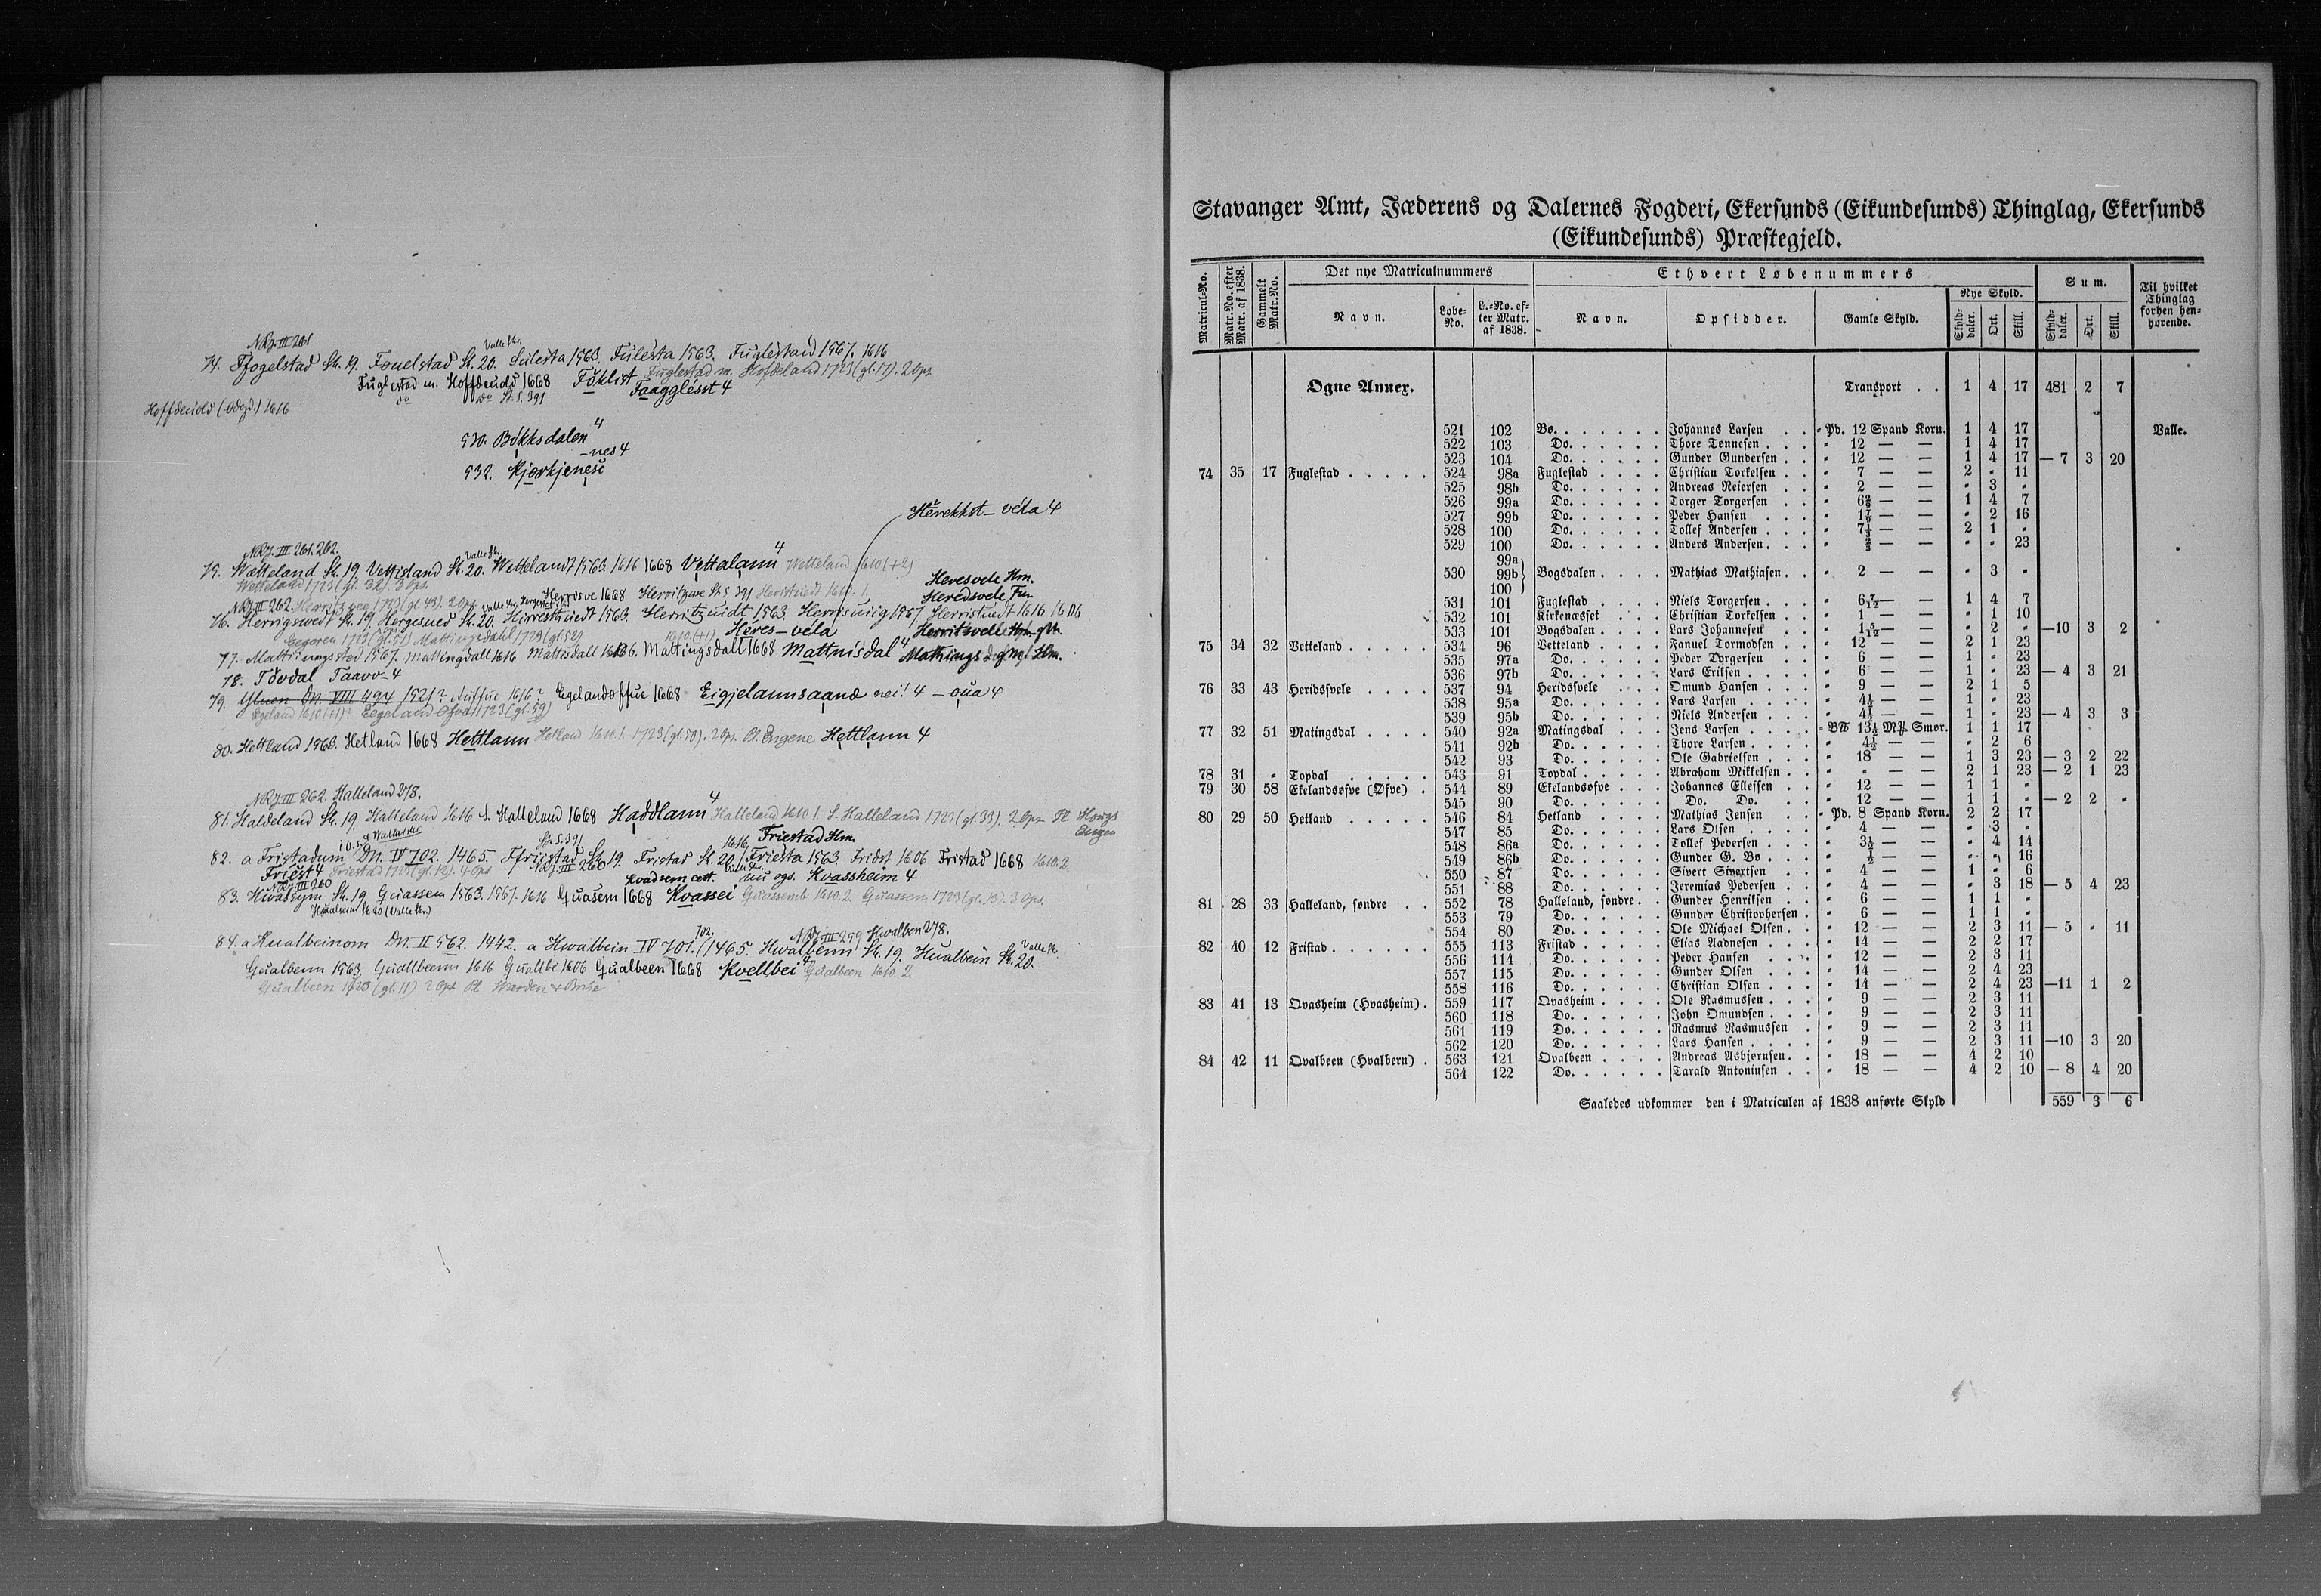 NRJ. III 261
74. Ffogelstad St. 19. Fouelstad St. 20. Fulesta 1563. Fuglestaid 1567. 1616
Fuglestad m. Hoffdeuids 1668 Föklist Fuglestad m. Hofdeland 1723 (gl. 17). 2 Ops.
do do St. S. 391 Faagglésst 4
Hoffdeuids (Ødegd.) 1616
530. Bókksdalen 4
-nes 4
532. Kjærkjenese
Herekkst-vela 4
NRJ. III 261. 262.
75. Wætteland St. 19 Vettisland St. 20. Wettelandt 1563 1616 1668 Vettalann 4 Wetteland 1610 (+2)
Wetteland 1723 (gl. 32). 3 Ops.
Heresvele Hm.
Heredsvele Fun
NRJ III 262. Herritzwee 1723 (gl. 43). 2 Ops. Herrisve 1668 Herritzwe St. S. 391
76. Herrigswedt St. 19. Hergesued St. 20. Hirresthuedt 1563. Herritzuidt 1563. Herrisuiig 1567 Herristuedt 1616
Heres-vela
77. Mattningsted 1567. Mattingdall 1616 Mattisdall 1606. Mattingsdall 1668 Mattnisdal 4
78. Tövdal Taavv- 4
79. Yluen Dn. VIII 494 1521? Auffue 1616? Egelandoffue 1668 Eigjelannsaanæ nei! 4 -oua 4
Egeland 1610 (+1)? Eegeland Øfve 1723 (gl. 59)
80. Hettland 1563. Hetland 1668 Hettlann Hetland 1610. 1. 1723 (gl. 50). 2 Ops. Pl. Engene Hettlann 4
NRJ III 262. Halleland 278.
81. Haldeland St. 19. Halleland 1616 S. Halleland 1668 Haddlann 4 Halleland 1610. 1. S. Halleland 1723 (gl. 33). 2 Ops. Pl. Hougs
Engen
82. a Fristadum Dn. IV 702. 1465. Ffriestad St. 19 Fristad St. 20. Friesta 1563. Fridst 1606 Fristad 1668 1610. 2.
Friestad Hm.
Friest 4 Friestad 1723 (gl. 12). 4 Ops NRJ. III 260 Kvadsem cett. nu ogs. Kvassheim 4
NRJ. III 260
83. Hwassym St. 19 Guassem 1563. 1567. 1616 Guasem 1668 Kvassei Guassemb 1610. 2. Guassem 1723 (gl. 13). 3 Ops.
Hualseim St. 20 (Valle Sk.)
NRJ. III 259 Hwalben 278.
84. a Hualbeinom Dn. II 562. 1442. a Hwalbein IV 701. 702. (1465. Hwalbenn St. 19. Hualbein St. 20.
Gualbenn 1563. Guallbeenn 1616 Gualtbe 1606 Gualbeen 1668 Kvellbei 4 Gualbeen 1610. 2
Gualbeen 1723 (gl. 11) 2 Ops. Pl. Warden
Stavanger Amt, Jæderens og Dalernes Fogderi, Ekersunds (Eikundesunds) Thinglag, Ekersunds
(Eikundesunds) Præstegjeld.
Matricul-No. Matr.No. efter Matr. af 1838. Gammelt Matr.No. Det nye Matriculnummers Ethvert Løbenummers Sum. Til hvilket Thinglag forhen henhørende.
Navn. Løbe-No. L.-No. efter Matr. af 1838. Navn. Opsidder. Gamle Skyld. Nye Skyld. Skylddaler. Ort. Skill. Skylddaler. Ort. Skill.
Ogne Annex. Transport . . 1 4 17 481 2 7
521 102 Bø. . . . . . . Johannes Larsen . . " Pd. 12 Spand Korn. 1 4 17 Valle.
522 103 Do. . . . . . Thore Tønnesen . . . " 12 — — 1 4 17
523 104 Do. . . . . . Gunder Gundersen . . " 12 — — 1 4 17 — 7 3 20
74 35 17 Fuglestad . . . . . 524 98a Fuglestad . . . . Christian Torkelsen . . " 7 — — 2 " 11
525 98b Do. . . . . . Andreas Reiersen . . " 2 — — " 3 "
526 99a Do. . . . . . Torger Torgersen . . " 6 2/3 — — 1 4 7
527 99b Do. . . . . . Peder Hansen . . . " — — " 2 16
528 100 Do. . . . . . Tollef Andersen . . . " 7 1/3 — — 2 1 "
529 100 Do. . . . . . Anders Andersen. . . " 2/3 — — " " 23
99a
530 99b } Bogsdalen. . . . Mathias Mathiasen. . " 2 — — " 3 "
100
531 101 Fuglestad . . . . Niels Torgersen . . . " 6 7/12 — — 1 4 7
532 101 Kirkenæsset . . Christian Torkelsen . . " 1 — — " 1 10
533 101 Bogsdalen . . . . Lars Johannesen . . " 1 5/12 — — " 2 " —10 3 2
75 34 32 Vetteland . . . . . 534 96 Vetteland . . . . Fanuel Tormodsen . . " 12 — — 2 1 23
535 97a Do. . . . . . Peder Torgersen . . " 6 — — 1 " 23
536 97b Do. . . . . . Lars Erilsen . . . . " 6 — — 1 " 23 — 4 3 21
76 33 43 Heridsvele . . . . 537 94 Heridsvele . . . Omund Hansen . . . " 9 — — 2 1 5
538 95a Do. . . . . . Lars Larsen . . . . " 4 1/2 — — 1 " 23
539 95b Do. . . . . . Niels Andersen . . . " 4 1/2 — — 1 " 23 — 4 3 3
77 32 51 Matingsdal . . . . 540 92a Matingsdal . . . Jens Larsen . . . . " 13 1/2 Smør. 1 1 17
541 92b Do. . . . . . Thore Larsen . . . . " 4 1/2 — — " 2 6
542 93 Do. . . . . . Ole Gabrielsen . . . " 18 — — 1 3 23 — 3 2 22
78 31 " Topdal . . . . . 543 91 Topdal . . . . . Abraham Mikkelsen . . " " — — 2 1 23 — 2 1 23
79 30 58 Ekelandsøfve (Øfve) . 544 89 Ekelandsøfve . . . Johannes Ellefsen . . " 12 — — 1 1 "
545 90 Do. . . . . . Do. Do. . . " 12 — — 1 1 " — 2 2 "
80 29 50 Hetland . . . . . 546 84 Hetland . . . . Mathias Jensen . . " Pd. 8 Spand Korn. 2 2 17
547 85 Do. . . . . . Lars Olsen . . . . " 4 — — " 3 "
548 86a Do. . . . . . Tollef Pedersen . . . " 3 1/2 — — " 4 14
549 86b Do. . . . . . Gunder G. Bø . . . " 1/2 — — " " 16
550 87 Do. . . . . . Sivert Sivertsen . . " 4 — — 1 " 6
551 88 Do. . . . . . Jeremias Pedersen . . " 4 — — " 3 18 — 5 4 23
81 28 33 Halleland, søndre . . 552 78 Halleland, søndre. . Gunder Henriksen . . " 6 — — 1 1 "
553 79 Do. . . . . . Gunder Christophersen . " 6 — — 1 1 "
554 80 Do. . . . . . Ole Michael Olsen. . " 12 — — 2 3 11 — 5 " 11
82 40 12 Fristad . . . . . . 555 113 Fristad . . . . . Elias Aadnesen . . " 14 — — 2 2 17
556 114 Do. . . . . . Peder Hansen . . . " 12 — — 2 3 11
557 115 Do. . . . . . Gunder Olsen . . . " 14 — — 2 4 23
558 116 Do. . . . . . Christian Olsen . . . " 14 — — 2 4 23 —11 1 2
83 41 13 Qvasheim (Hvasheim) . 559 117 Qvasheim . . . . Ole Rasmussen . . . " 9 — — 2 3 11
560 118 Do. . . . . . John Omundsen . . . " 9 — — 2 3 11
561 119 Do. . . . . . Rasmus Rasmussen . " 9 — — 2 3 11
562 120 Do. . . . . . Lars Hansen . . . . " 9 — — 2 3 11 —10 3 20
84 42 11 Qvalbeen (Hvalbern) . 563 121 Qvalbeen . . . . Andreas Asbjørnsen. . " 18 — — 4 2 10
564 122 Do. . . . . . Tarald Antoniusen . . " 18 — — 4 2 10 — 8 4 20
Saaledes udkommer den i Matriculen af 1838 anførte Skyld 559 3 6